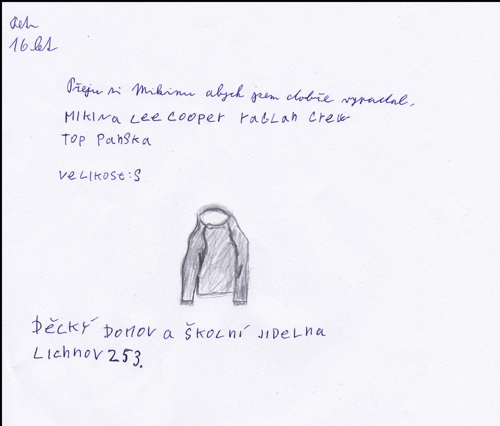 Petr
16 let
Přeju si Mikinu abych jsem dobře vypadal.
MIKINA Lee Cooper rabLan Crew
TOP PaNSKa
VELIKOST:S
DĚCKÝ DOMOV a ŠKOLNÍ JIDELNA
LICHNOV 253.